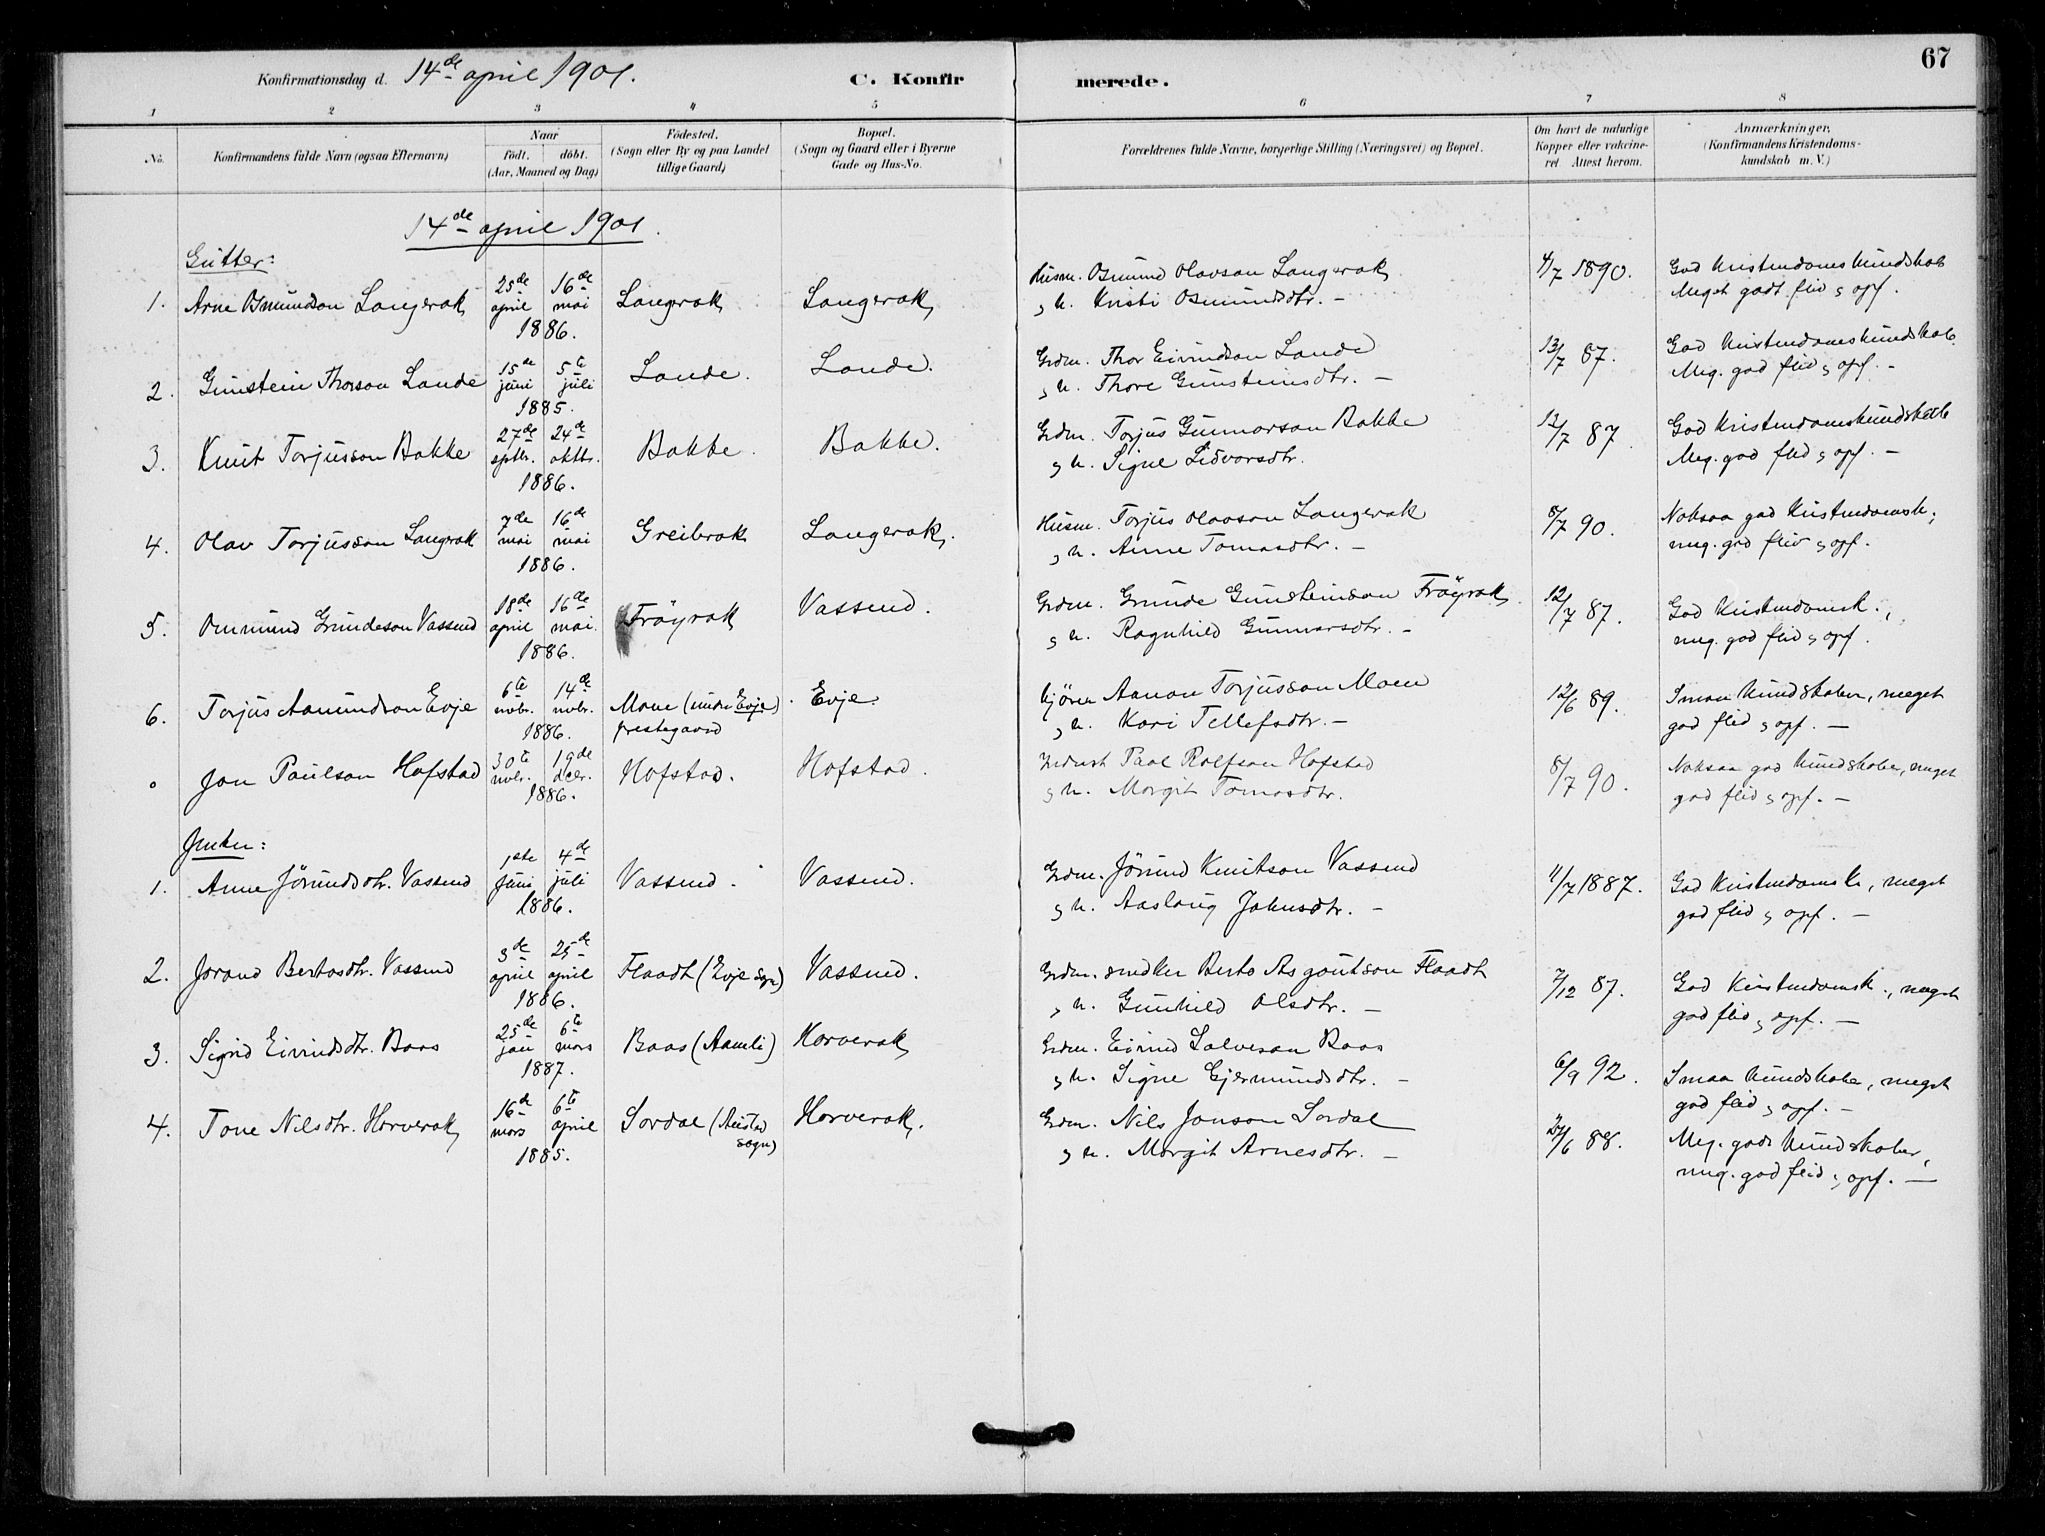 67
Konfirmationsdag d. 14de april 1901. C. Konfirmerede.
1 2 3 4 5 6 7 8
No. Konfirmandens fulde Navn (ogsaa Efternavn) Naar födt. döbt. (Aar, Maaned og Dag) Födested. (Sogn eller By og paa Landet tillige Gaard) Bopæl. (Sogn og Gaard eller i Byerne Gade og Hus-No. Forældrenes fulde Navne, borgerlige Stilling (Næringsvei) og Bopæl. Om havt de naturlige Kopper eller vakcineret. Attest herom. Anmærkninger. (Konfirmandens Kristendomskundskab m. V.)
14de april 1901.
Gutter:
1. Arne Osmundson Langerak 25de april 16de mai 1886. Langerak Langerak Husm. Osmund Olavson Langerak 4/7 1890. God Kristendomskundskab
og h. Kristi Osmundsdtr. – Meget godt flid og opf.
2. Gunstein Thorson Lande 15de juni 5te juli 1885. Lande. Lande. Grdm. Thor Eivindson Lande 13/7 87. God Kristendomskundskab.
og h. Thore Gunsteinsdtr. – Meg. god flid og opf. –
3. Knut Torjusson Bakke 27de sptbr. 24de oktbr. 1886. Bakke. Bakke. Grdm. Torjus Gunnarson Bakke 12/7 87 God Kristendomskundskab
og h. Signe Lidvorsdtr. Meg. god flid og opf. –
4. Olav Torjusson Langerak 7de mai 16de mai 1886. Greibrok Langerak. Husm. Torjus Olavson Langerak 8/7 90. Noksaa god Kristendomsk.;
og h. Anne Tomasdtr. – meg. god flid og opf.
5. Ommund Grundeson Vassend 18de april 16de mai. 1886. Fröyrak Vassend. Grdm. Grunde Gunsteinson Fröyrak. 12/7 87. God Kristendomsk.,
og h. Ragnhild Gunnarsdtr. – meg. god flid og opf.
6. Torjus Aamundson Evje 6te novbr. 14de novbr. 1886. Mone (under Evje) prestegaard Evje. Aanon Torjusson Moen 12/6 89. Smaa Kundskaber, meget
og h. Kari Tellefsdtr. – god flid og opf. –
Jon Paulson Hofstad 30te novbr. 19de decbr. 1886. Hofstad. Hofstad. Paal Rolfson Hofstad 8/7 90. Noksaa god Kundskaber, meget
og h. Margit Tomasdtr. god flid og opf. –
Jenter:
1. Anne Jörundsdtr. Vassend 1ste Juni 4de juli 1886. Vassend. Vassend. Grdm. Jörund Knutson Vassend 11/7 1887. God Kristendomsk, meget
og h. Aaslaug Johnsdtr. – god flid og opf. –
2. Jorand Bertosdtr. Vassend 3de april 25de april 1886. Flaadt (Evje sogn) Vassend. Grdm. snedker Berto Asgoutson Flaadt 7/12 87. God Kristendomsk., meget
og h. Gunhild Olsdtr. – god flid og opf. –
3. Sigrid Eivindsdtr. Baas 25de jan 6te mars 1887. Baas (Aamli) Horverak Grdm. Eivind Salveson Baas 6/9 92. Smaa Kundskaber, meget
og h. Signe Gjermundsdtr. – god flid og opf. –
4. Tone Nilsdtr. Horverak 16de mars 6te april 1885. Sordal (Austad sogn) Horverak. Grdm. Nils Jonson Sordal 24/6 88. Meg. gode Kundskaber,
og h. Margit Arnesdtr. – meg. god flid og opf. –